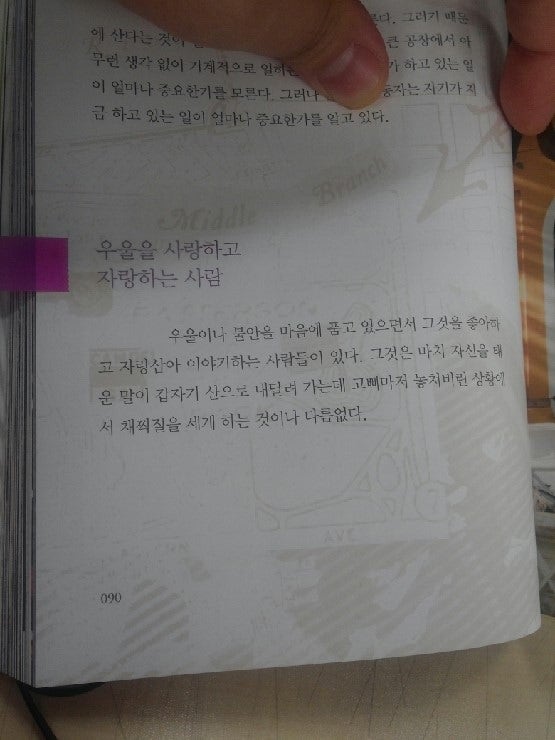 에 산다는 것이
른다. 그러기 때문
큰 공장에서 아
무런 생각 없이 기계적으로 일하는
가 하고 있는 일
이 얼마나 중요한가를 모른다. 그러나
동자는 자기가 지
금 하고 있는 일이 얼마나 중요한가를 알고 있다.
Middle Branch
우울을 사랑하고
자랑하는 사람
우울이나 불안을 마음에 품고 있으면서 그것을 좋아하
고 자랑삼아 이야기하는 사람들이 있다. 그것은 마치 자신을 태
운 말이 갑자기 산으로 내달려 가는데 고삐마저 놓쳐버린 상황에
서 채찍질을 세게 하는 것이나 다름없다.
AVE
090